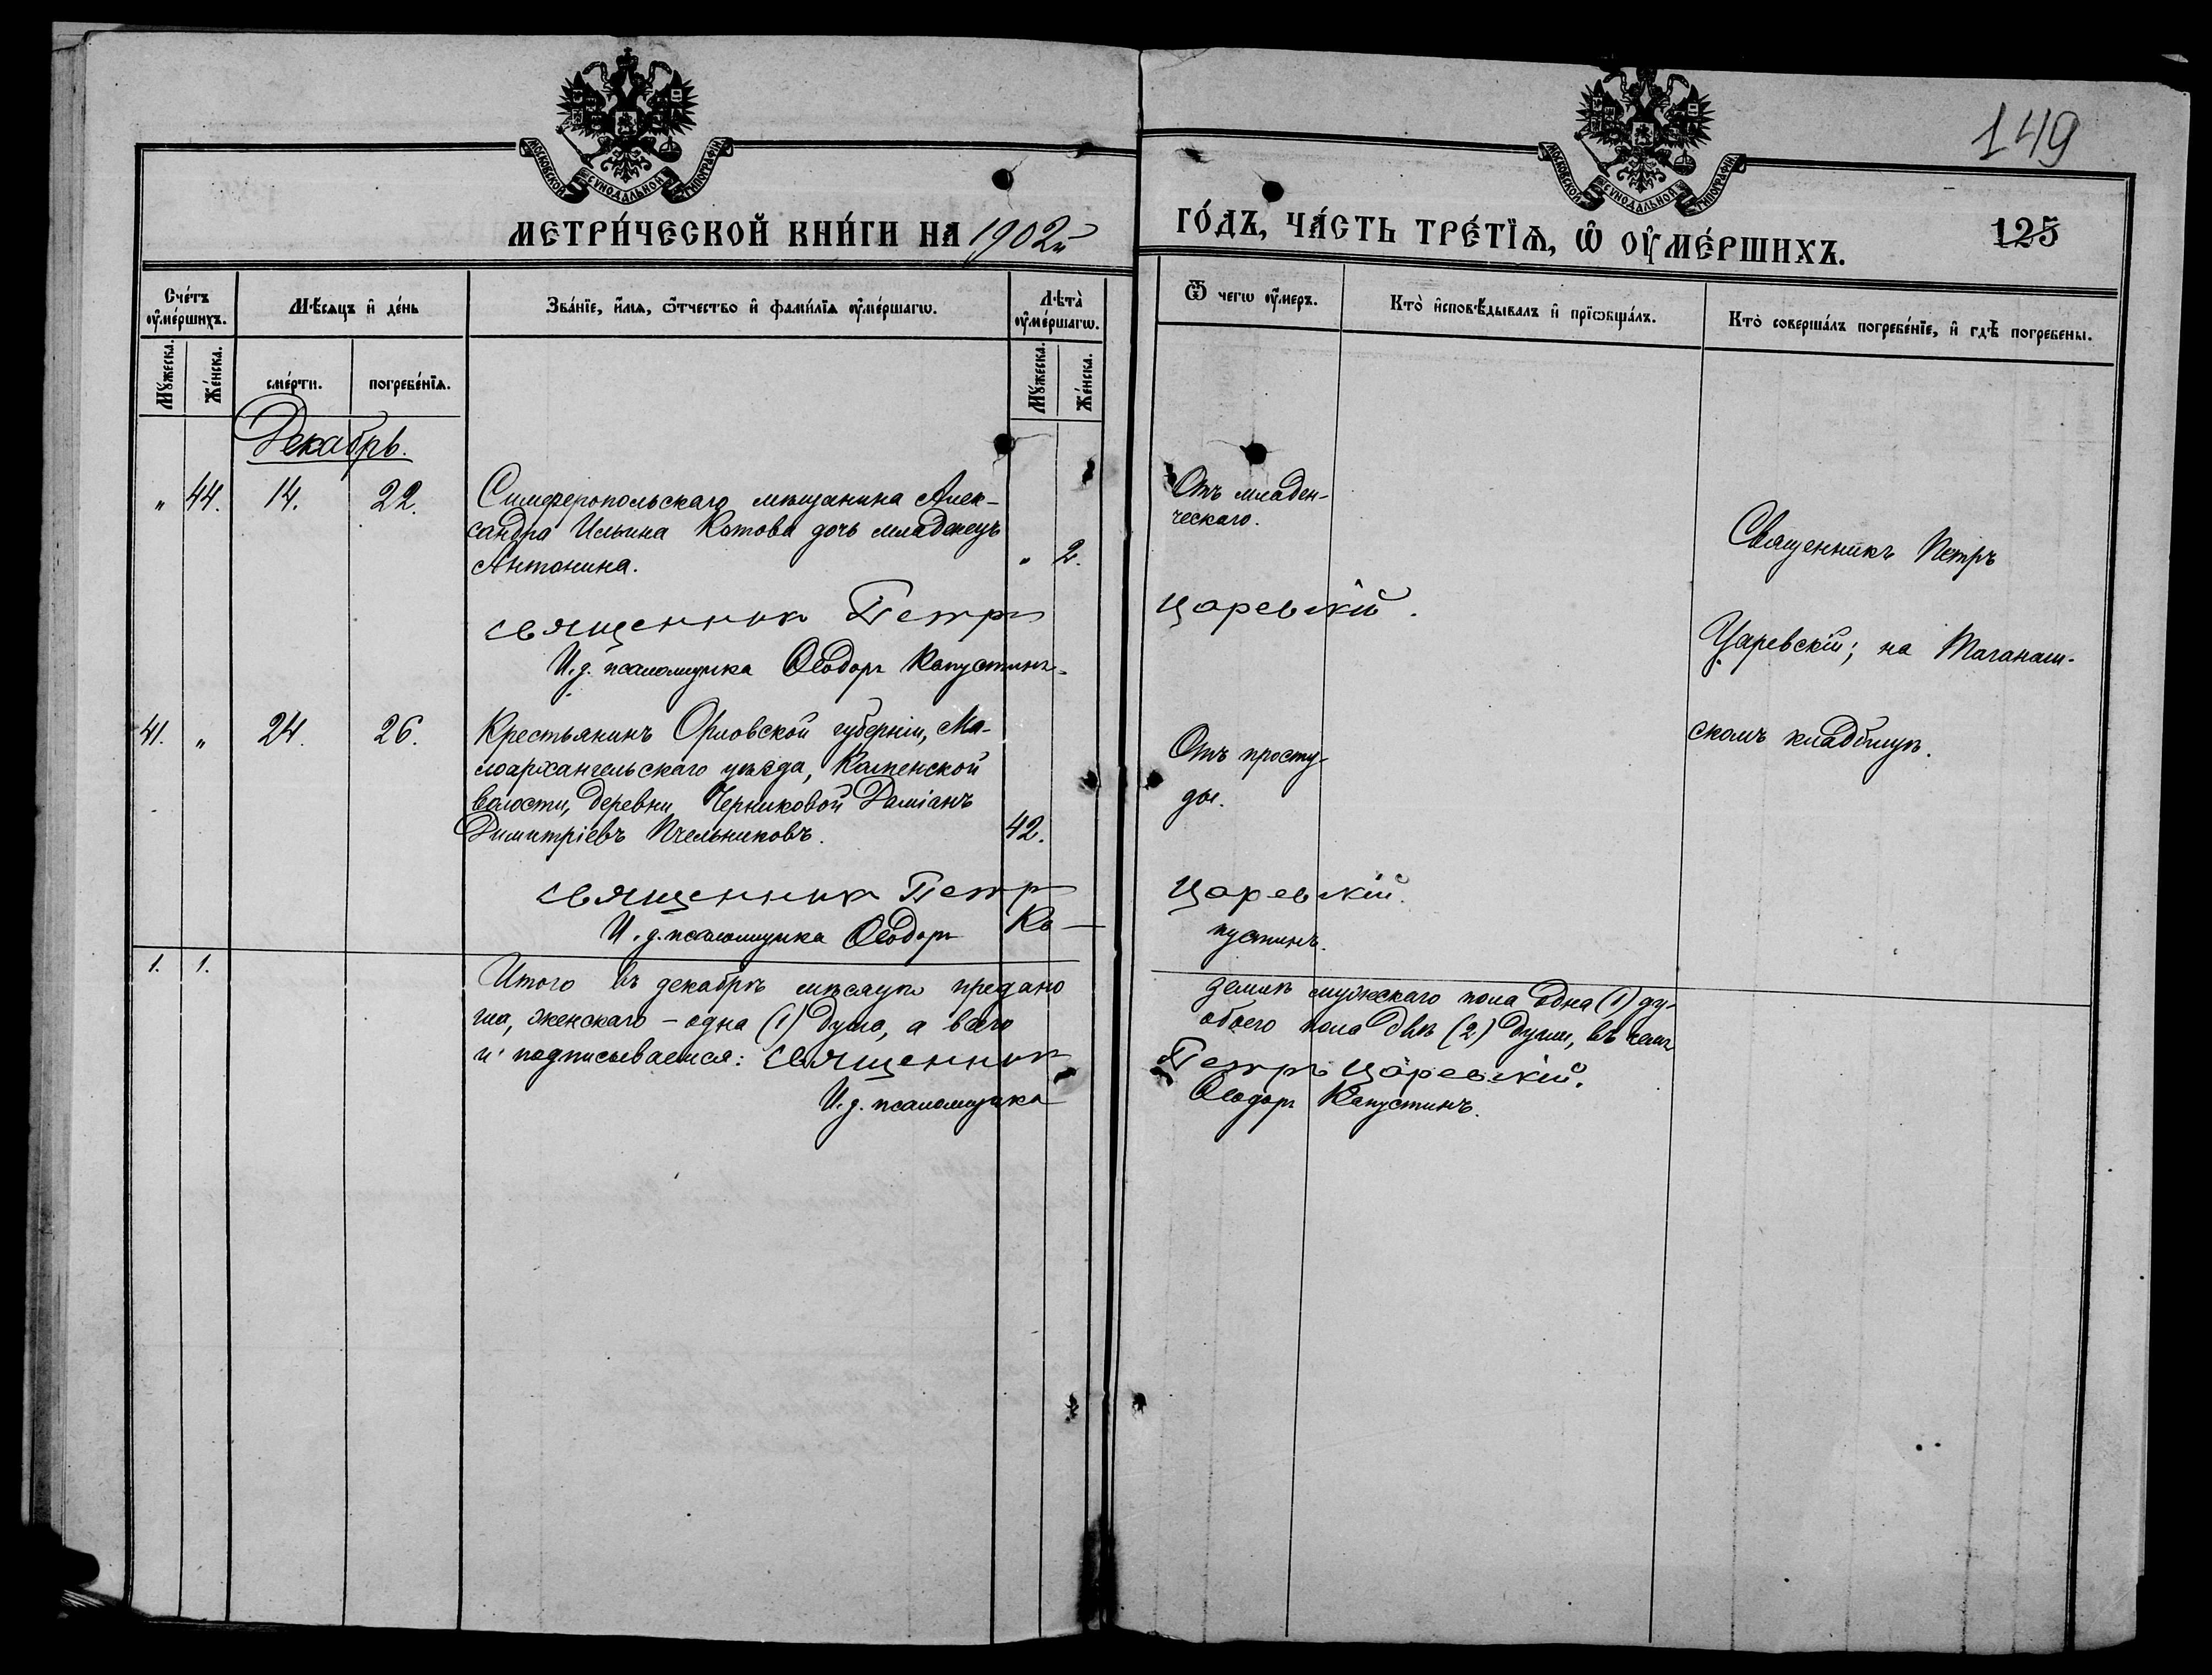 МОСКОВСКОЙ СѴНОДАЛЬНОЙ ТИПОГРАФІИ
МОСКОВСКОЙ СѴНОДАЛЬНОЙ ТИПОГРАФІИ
149
МЕТРИ́ЧЕСКОЙ КНИ́ГИ НА 1902й
ГО́ДЪ, ЧА́СТЬ ТРЕ́ТЇѦ, Ѡ҆ ОУ҆МЕ́РШИХЪ.
125
Сче́тъ оу҆ме́ршихъ.
Мѣ́сѧцъ и҆ де́нь
Зва́нїе, и҆́мѧ, ѻ҆́тчество и҆ фамѝлїѧ оу҆ме́ршагѡ.
Лѣ́та оу҆ме́ршагѡ.
Ѿ чегѡ̀ оу҆́меръ.
Кто̀ и҆сповѣ́дывалъ и҆ прїѡбща́лъ.
Кто̀ соверша́лъ погребе́нїе, и҆ гдѣ̀ погребены̀.
Мꙋ́жеска.
Же́нска.
сме́рти.
погребе́нїѧ.
Мꙋ́жеска.
Же́нска.
Декабрь.
" 44. 14. 22. Симферопольскаго мѣщанина Алек-
сандра Ильина Котова дочь младенецъ
Антонина. " 2.
Отъ младен-
ческаго.
Священникъ Петръ
Царевскій; на Таганаш-
скомъ кладбищѣ.
священникъ Петръ Царевскій.
И. д. псаломщика Ѳеодоръ Капустинъ.
41. " 24. 26. Крестьянинъ Орловской губерніи, Ма-
лоархангельскаго уѣзда, Каменской
волости, деревни Черниковой Даміанъ
Димитріевъ Пчельниковъ. 42.
Отъ просту-
ды.
священникъ Петръ Царевскій.
И. д. псаломщика Ѳеодоръ Ка-
пустинъ.
1. 1. Итого въ декабрѣ мѣсяцѣ предано землѣ мужескаго пола одна (1) ду-
ша, женскаго – одна (1) душа, а всего обоего пола двѣ (2) души, въ чемъ
и подписываемся: священникъ Петръ Царевскій.
И. д. псаломщика Ѳеодоръ Капустинъ.